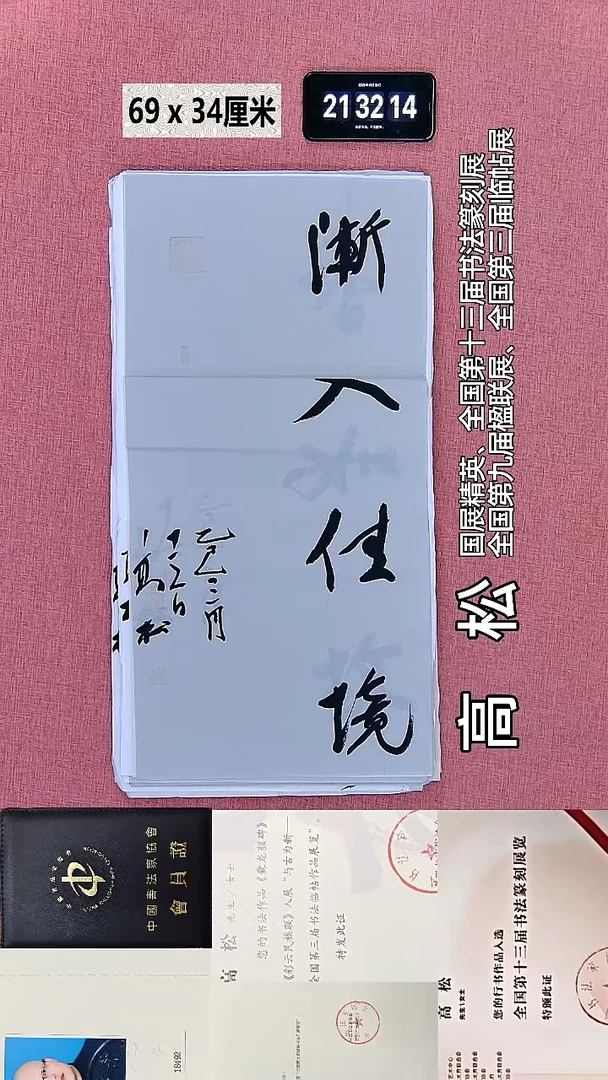 69 x 34厘米
21 32 14
漸入佳境
乙巳三月
十六日
高松
国展精英、全国第十三届书法篆刻展
全国第九届楹联展、全国第三届临帖展
高松
中國書法家協會
會員證
高 松 先生/女士
您的书法作品《爨龙颜碑》
《彩云民族联》入展“与古为新——
全国第三届书法临帖作品展览”。
特发此证
高 松
先生\女士
您的行书作品入选
全国第十三届书法篆刻展览
特颁此证
18492